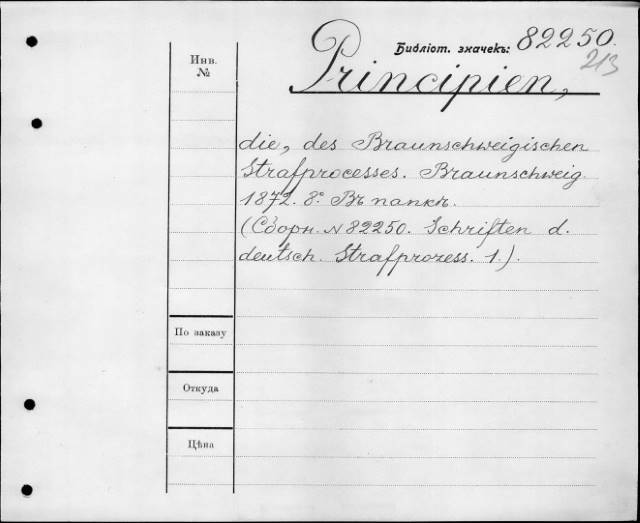 Библіот. значекъ: 82250.
213
Инв.
№
Principien,
die, des Braunschweigischen
Strafprocesses. Braunschweig.
1872. 8°. Въ папкѣ.
(Сборн. № 82250. Schriften d.
deutsch. Strafprozess. 1.).
По заказу
Откуда
Цѣна